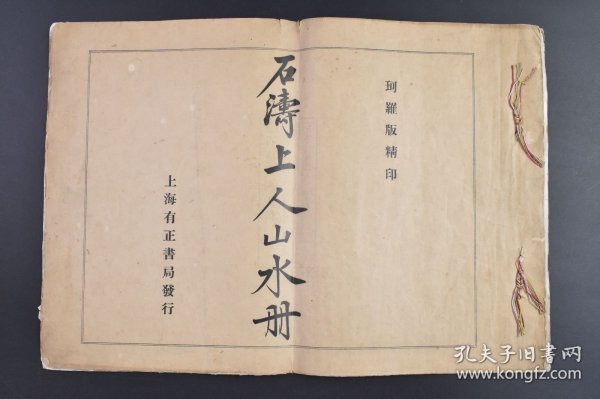 珂羅版精印
石濤上人山水册
上海有正書局發行
孔夫子旧書网
www.kongfz.com